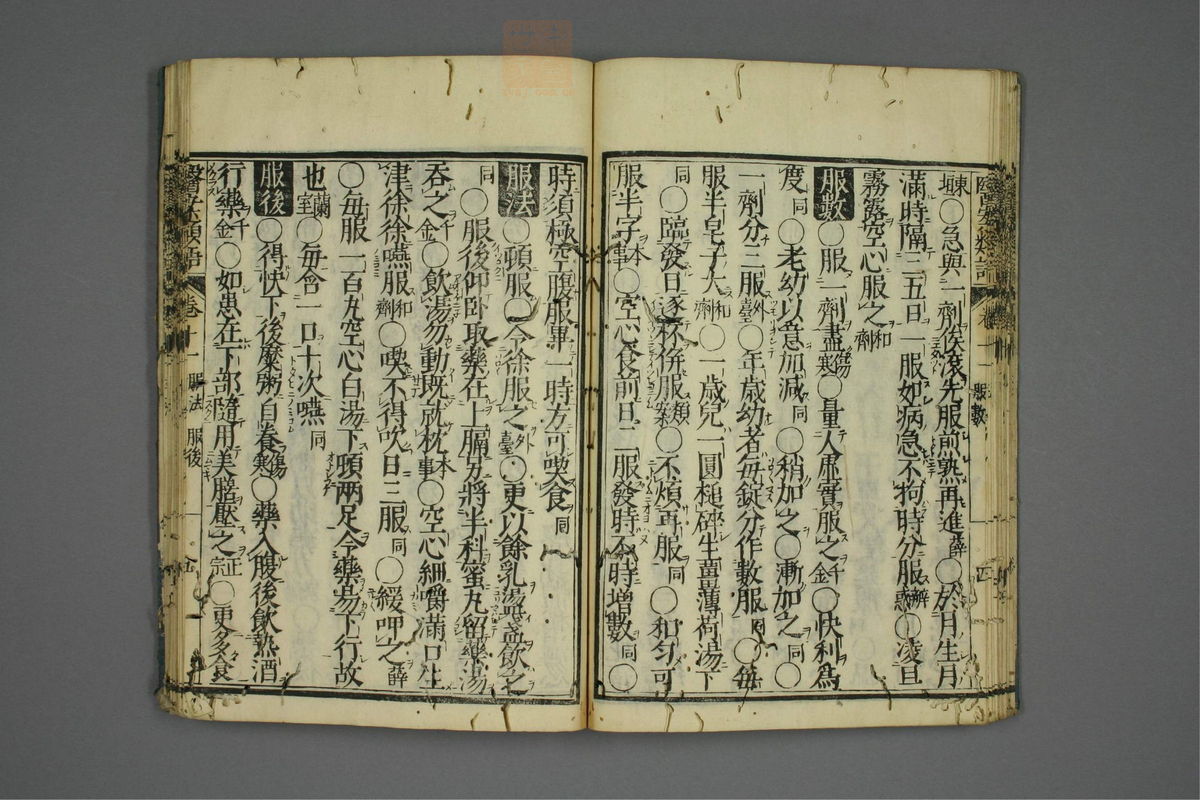 東垣○急與一劑候滾先服煎熟再進薛○於月生月
滿時隔三五日一服如病急不拘時分服○凌旦
霧露空心服之和劑
服數○服一劑盡傷寒○量人虛實服之千金○快利爲
度同○老幼以意加減同○稍加之○漸加之同○
一劑分三服外臺○年歲幼者每錠分作數服同○每
服半皂子大和劑○一歲兒一圓槌碎生薑薄荷湯下
同○臨發日逐杯併服類聚○不煩再服同○和勻可
服半字本事○空心食前日二服發時不時增數同○
時須極空腹服畢一時方可喫食同
服法○頓服○令徐服之外臺○更以餘乳盪盞飲之
同○服後仰卧取藥在上膈另將半料蜜丸留藥湯
吞之千金○飲湯勿動既就枕本事○空心細嚼滿口生
津徐徐嚥服和劑○喫不得吹日三服同○緩呷之薛
○每服一百丸空心白湯下頓兩足令藥易下行故
也蘭室○每含一口十次嚥同
服後○得快下後糜粥自養傷寒○藥入腹後飲熱酒
行藥千金○如患在下部隨用美膳壓之正宗○更多食
醫學類語 卷十一 服法 服後
服數